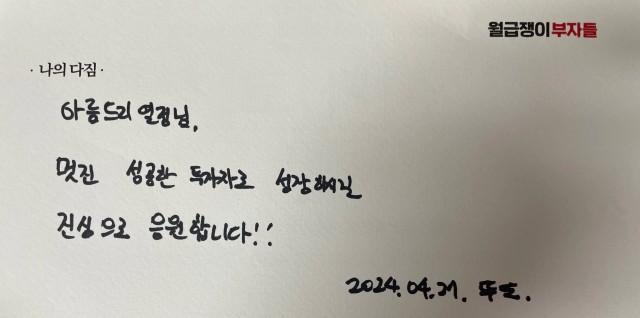 월급쟁이부자들
· 나의 다짐 ·
아름드리 열정님,
멋진 성공한 투자자로 성장하시길
진심으로 응원합니다!!
2024.04.21. 뚜또.